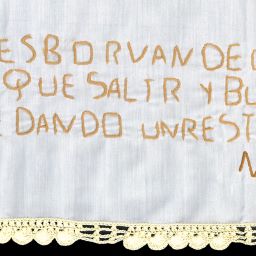 ESBORVANDE
QUE SALTR Y BU
DANDO UN REST
N